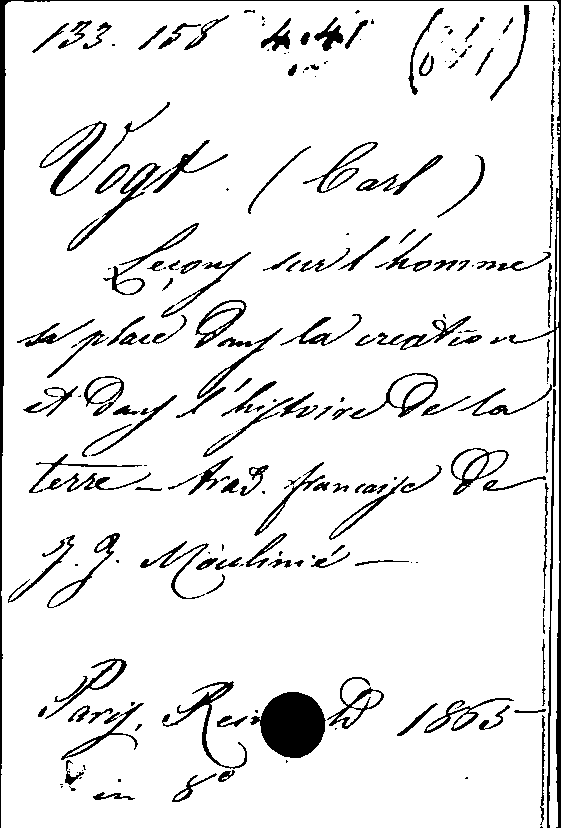 133. 158 4.41
Vogt. (Carl)
Leçons sur l'homme
sa place dans la création
et dans l'histoire de la
terre - trad. française de
J. J. Moulinié -
Paris, 1865
in 8°